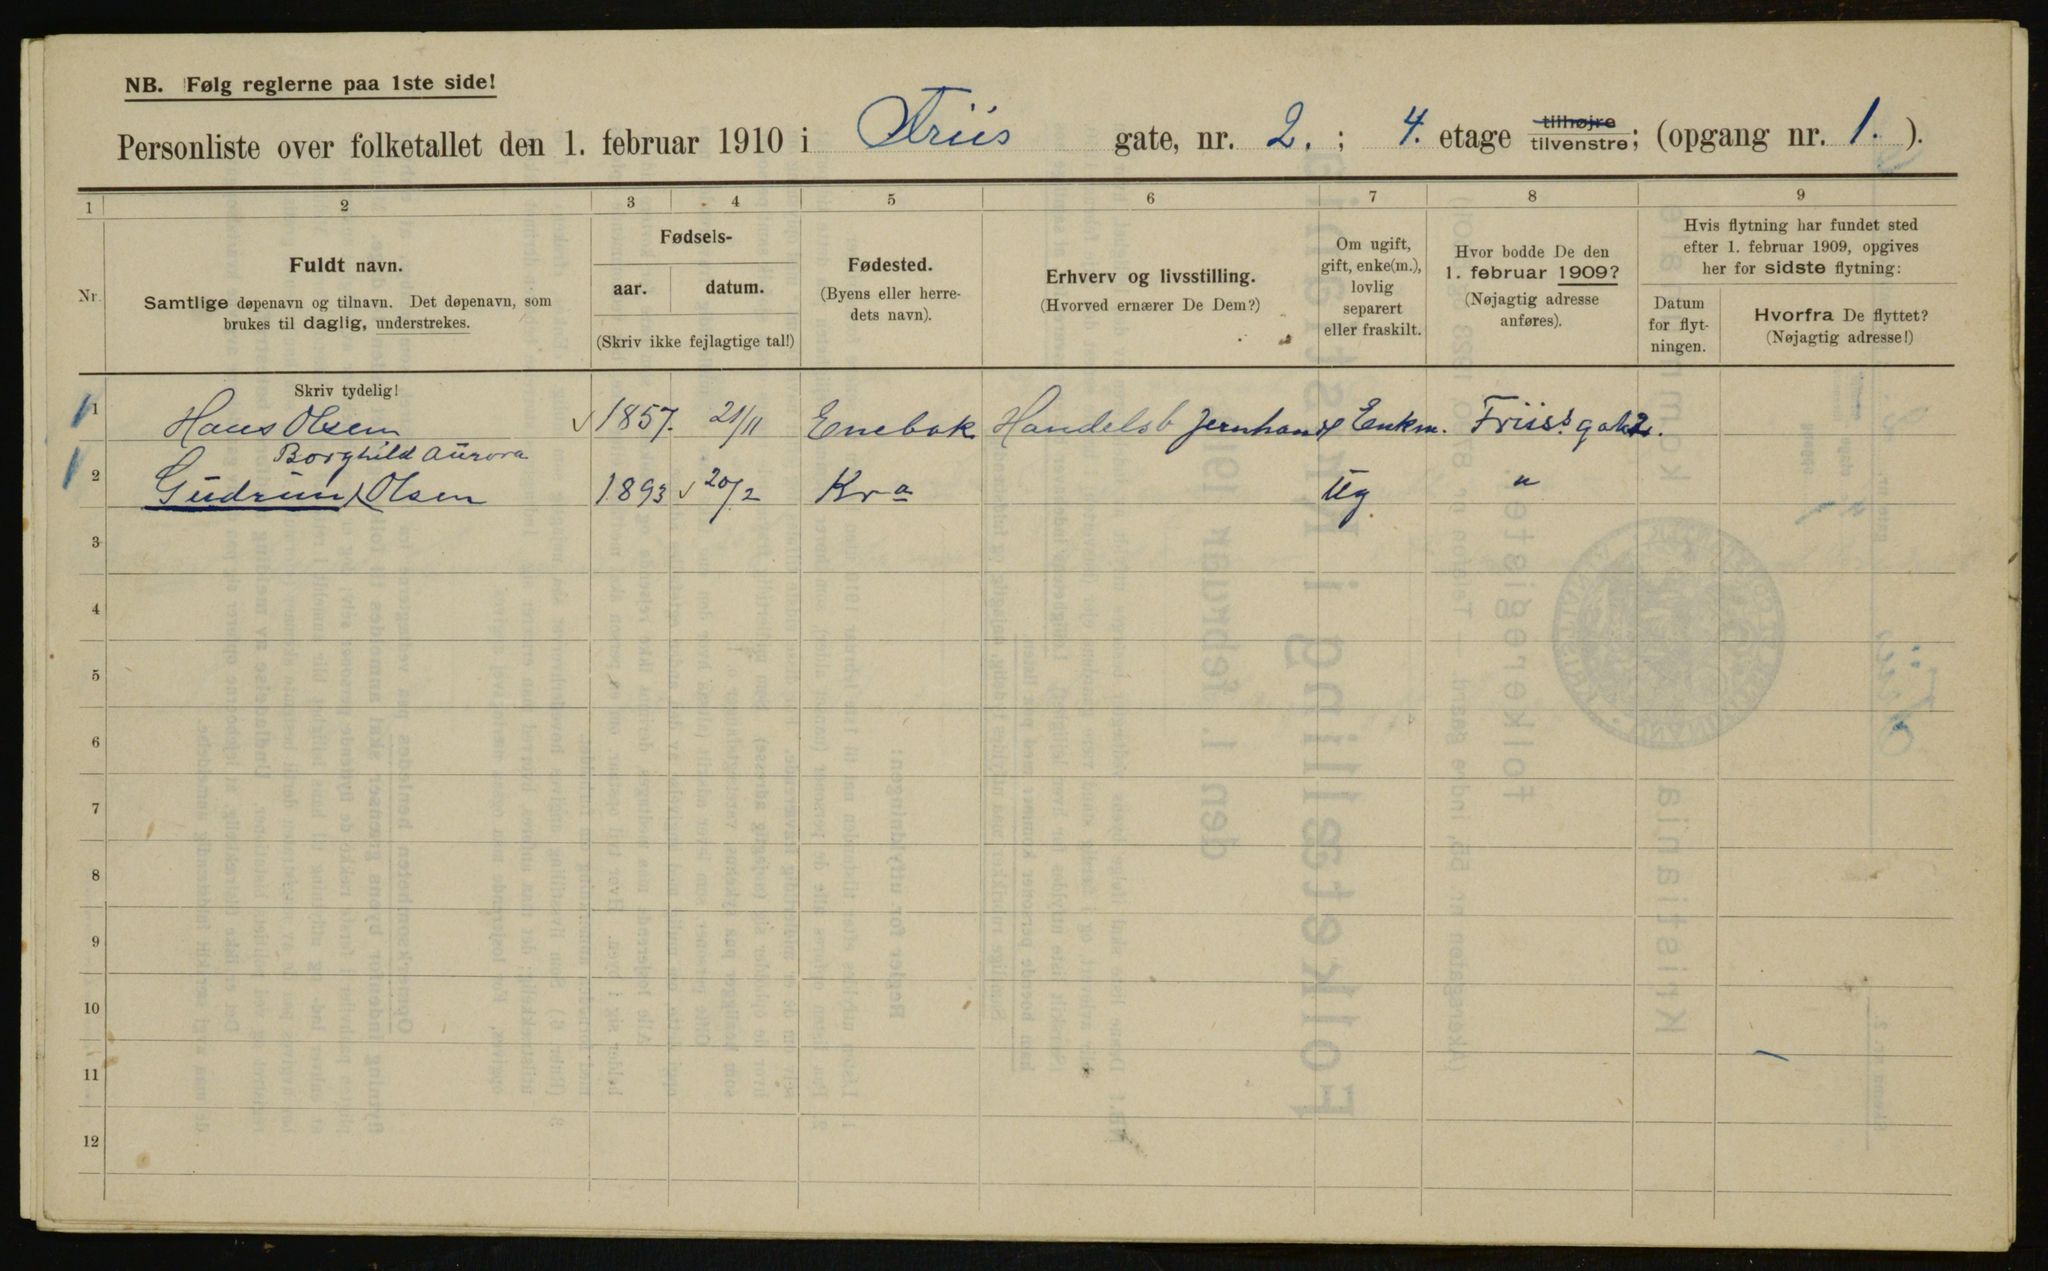 NB. Følg reglerne paa 1ste side!
Personliste over folketallet den 1. februar 1910 i Friis gate, nr. 2. ; 4. etage tilhøjre tilvenstre; (opgang nr. 1. ).
1 2 3 4 5 6 7 8 9
Nr.
Fuldt navn.
Samtlige døpenavn og tilnavn. Det døpenavn, som
brukes til daglig, understrekes.
Fødsels-
aar. datum.
(Skriv ikke fejlagtige tal!)
Fødested.
(Byens eller herre-
dets navn).
Erhverv og livsstilling.
(Hvorved ernærer De Dem?)
Om ugift,
gift, enke(m.),
lovlig
separert
eller fraskilt.
Hvor bodde De den
1. februar 1909?
(Nøjagtig adresse
anføres).
Hvis flytning har fundet sted
efter 1. februar 1909, opgives
her for sidste flytning:
Datum
for flyt-
ningen.
Hvorfra De flyttet?
(Nøjagtig adresse!)
Skriv tydelig!
1 Hans Olsen 1857. 21/11 Enebak Handelsb Jernhandl Enkm. Friis's gate 2.
Borghild Aurora
2 Gudrun Olsen 1893 20/2 Kra Ug "
3
4
5
6
7
8
9
10
11
12